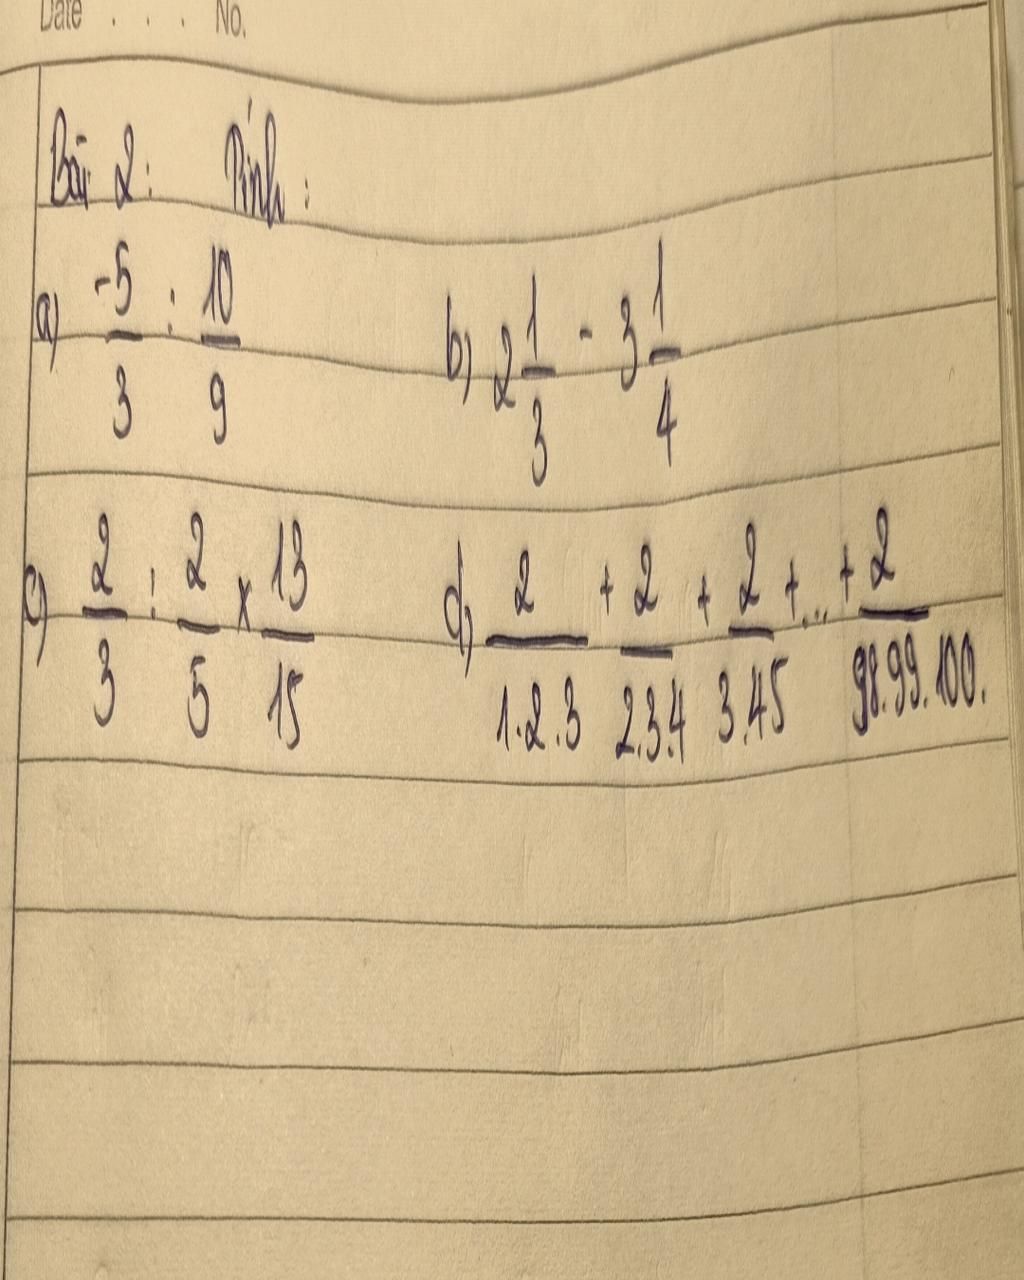 Date . . . No.
Bài 2: Tính:
a) -5/3 : 10/9 b) 2 1/3 - 3 1/4
c) 2/3 : 2/5 x 13/15 d) 2/1.2.3 + 2/2.3.4 + 2/3.4.5 + ... + 2/98.99.100.